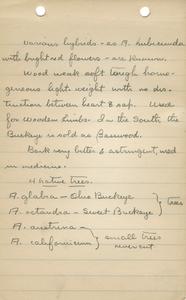 Various hybrids - as A. hubicunda
with bright red flowers - are known.
Wood weak soft tough homo-
geneous light weight with no dis-
tinction between heart & sap. Used
for Wooden limbs. In the South the
Buckeye is sold as Basswood.
Bark very bitter & astringent, used
in medicine.
4 native trees.
A. glabra - Ohio Buckeye
A. octandra - Sweet Buckeye } trees
A. austrina -
A. californicum } small trees